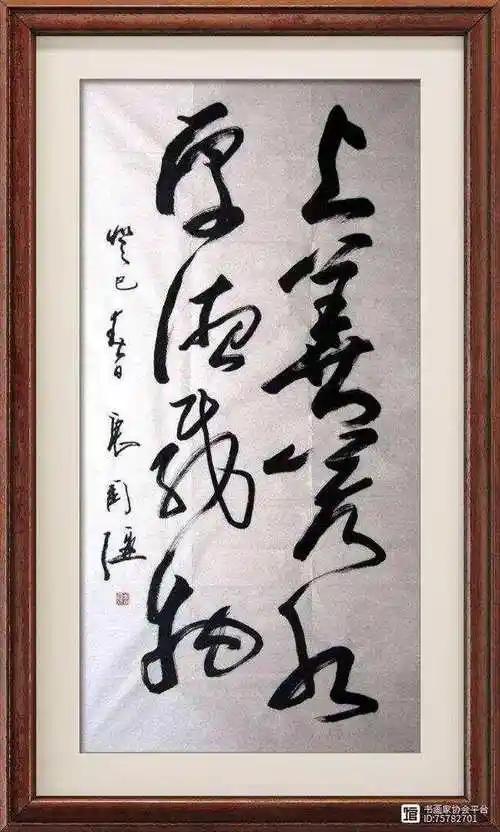 上善若水
厚德载物
癸巳春日
书画家协会平台
ID:75782701